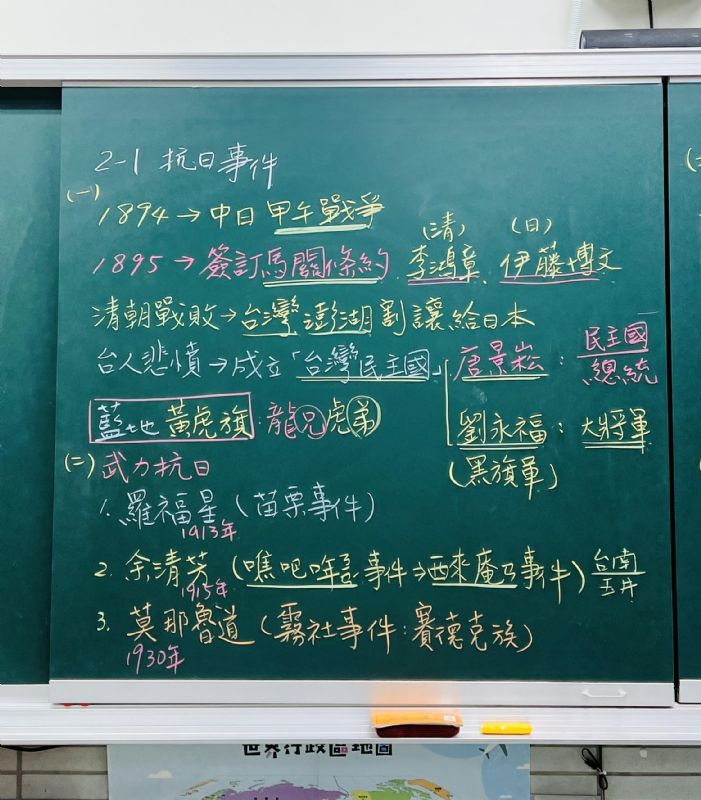 2-1 抗日事件
(一)
1894→中日甲午戰爭
(清) (日)
1895→簽訂馬關條約 李鴻章、伊藤博文
清朝戰敗→台灣澎湖割讓給日本
台人悲憤→成立「台灣民主國」 唐景崧:民主國總統
藍地黃虎旗:龍兄虎弟
劉永福:大將軍
(黑旗軍)
(二)武力抗日
1.羅福星(苗栗事件)
1913年
2.余清芳(噍吧哖ㄋㄧㄢˊ事件→西來庵ㄢ事件)台南玉井
1915年
3.莫那魯道(霧社事件:賽德克族)
1930年
世界行政區地圖